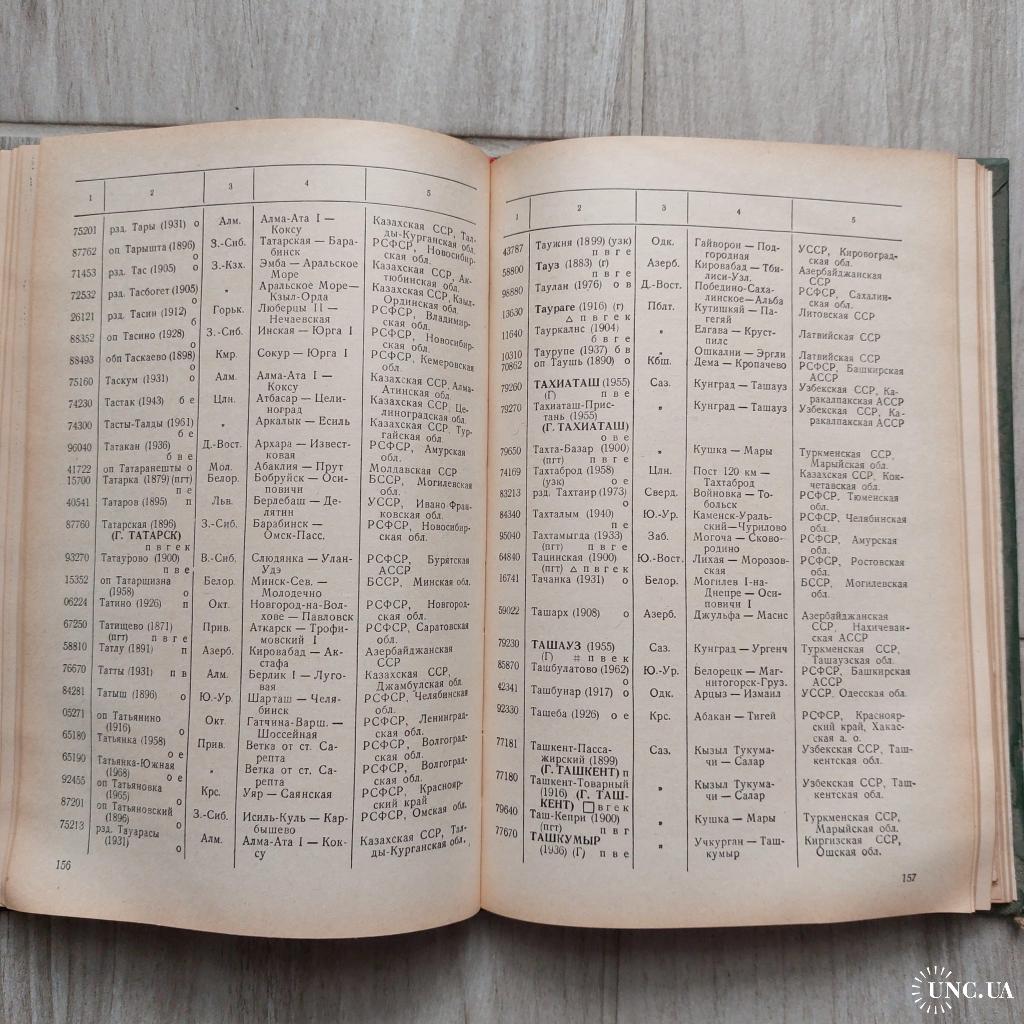 1 2 3 4 5
75201 рзд. Тары (1931) о Алм. Алма-Ата I — Коксу Казахская ССР, Талды-Курганская обл.
87762 оп Тарышта (1896) о З.-Сиб. Татарская — Барабинск РСФСР, Новосибирская обл.
71453 рзд. Тас (1905) о З.-Кзх. Эмба — Аральское Море Казахская ССР, Актюбинская обл.
72532 рзд. Тасбогет (1905) о „ Аральское Море— Кзыл-Орда Казахская ССР, Кзыл-Ординская обл.
26121 рзд. Тасин (1912) б Горьк. Люберцы II — Нечаевская РСФСР, Владимирская обл.
88352 оп Тасино (1928) о З.-Сиб. Инская — Юрга I РСФСР, Новосибирская обл.
88493 обп Таскаево (1898) о Кмр. Сокур — Юрга I РСФСР, Кемеровская обл.
75160 Таскум (1931) о Алм. Алма-Ата I — Коксу Казахская ССР, Алма-Атинская обл.
74230 Тастак (1943) б е Цлн. Атбасар — Целиноград Казахская ССР, Целиноградская обл.
74300 Тасты-Талды (1961) б е „ Аркалык — Есиль Казахская ССР, Тургайская обл.
96040 Татакан (1936) б в е Д.-Вост. Архара — Известковая РСФСР, Амурская обл.
41722 оп Татаранешты о Мол. Абаклия — Прут Молдавская ССР
15700 Татарка (1879) (пгт) п е Белор. Бобруйск — Осиповичи БССР, Могилевская обл.
40541 Татаров (1895) п Льв. Берлебаш — Делятин УССР, Ивано Франковская обл.
87760 Татарская (1896) (Г. ТАТАРСК) п в г е к З.-Сиб. Барабинск — Омск-Пасс. РСФСР, Новосибирская обл.
93270 Татаурово (1900) п в е В.-Сиб. Слюдянка — Улан-Удэ РСФСР, Бурятская АССР
15352 оп Татарщизна (1958) о Белор. Минск-Сев. — Молодечно БССР, Минская обл.
06224 Татино (1926) п Окт. Новгород-на-Волхове — Павловск РСФСР, Новгородская обл.
67250 Татищево (1871) (пгт) п в г е Прив. Аткарск — Трофимовский I РСФСР, Саратовская обл.
58810 Татлу (1891) п Азерб. Кировабад — Акстафа Азербайджанская ССР
76670 Татты (1931) п в Алм. Берлик I — Луговая Казахская ССР, Джамбулская обл.
84281 Татыш (1896) о Ю.-Ур. Шарташ — Челябинск РСФСР, Челябинская обл.
05271 оп Татьянино (1916) о Окт. Гатчина-Варш. — Шоссейная РСФСР, Ленинградская обл.
65180 Татьянка (1958) о е Прив. Ветка от ст. Сарепта РСФСР, Волгоградская обл.
65190 Татьянка-Южная (1968) о е „ Ветка от ст. Сарепта РСФСР, Волгоградская обл.
92455 оп Татьяновка (1965) о Крс. Уяр — Саянская РСФСР, Красноярский край
87201 оп Татьяновский (1896) о З.-Сиб. Исиль-Куль — Карбышево РСФСР, Омская обл.
75213 рзд. Тауарасы (1931) о Алм. Алма-Ата I — Коксу Казахская ССР, Талды-Курганская обл.
156
1 2 3 4 5
43787 Таужня (1899) (узк) п в г е Одк. Гайворон — Подгородная УССР, Кировоградская обл.
58800 Тауз (1883) (г) п в г е Азерб. Кировабад — Тбилиси-Узл. Азербайджанская ССР
98880 Таулан (1976) о в Д.-Вост. Победино-Сахалинское—Альба РСФСР, Сахалинская обл.
13630 Таураге (1916) (г) △ п в г е к Пблт. Кутишкяй — Пагегяй Литовская ССР
11640 Тауркалнс (1904) б в г е „ Елгава — Крустпилс Латвийская ССР
10310 Таурупе (1937) б в „ Ошкални — Эргли Латвийская ССР
70862 оп Таушь (1890) о Кбш. Дема — Кропачево РСФСР, Башкирская АССР
79260 ТАХИАТАШ (1955) (Г) п в е Саз. Кунград — Ташауз Узбекская ССР, Каракалпакская АССР
79270 Тахиаташ-Пристань (1955) (Г. ТАХИАТАШ) о в е „ Кунград — Ташауз Узбекская ССР, Каракалпакская АССР
79650 Тахта-Базар (1900) (пгт) п в г е „ Кушка — Мары Туркменская ССР, Марыйская обл.
74169 Тахтаброд (1958) (узк) о е Цлн. Пост 120 км — Тахтаброд Казахская ССР, Кокчетавская обл.
83213 рзд. Тахтаир (1973) о Сверд. Войновка — Тобольск РСФСР, Тюменская обл.
84340 Тахталым (1940) п е Ю.-Ур. Каменск-Уральский—Чурилово РСФСР, Челябинская обл.
95040 Тахтамыгда (1933) (пгт) п в е Заб. Могоча — Сковородино РСФСР, Амурская обл.
64840 Тацинская (1900) (пгт) △ п в г е к Ю.-Вост. Лихая — Морозовская РСФСР, Ростовская обл.
16741 Тачанка (1931) о Белор. Могилев I-на-Днепре — Осиповичи I БССР, Могилевская обл.
59022 Ташарх (1908) о Азерб. Джульфа — Масис Азербайджанская ССР, Нахичеванская АССР
79230 ТАШАУЗ (1955) (Г) # п в е к Саз. Кунград — Ургенч Туркменская ССР, Ташаузская обл.
85870 Ташбулатово (1962) п Ю.-Ур. Белорецк — Магнитогорск-Груз. РСФСР, Башкирская АССР
42341 Ташбунар (1917) о Одк. Арцыз — Измаил УССР, Одесская обл.
92330 Ташеба (1926) о е Крс. Абакан — Тигей РСФСР, Красноярский край, Хакасская а. о.
77181 Ташкент-Пассажирский (1899) (Г. ТАШКЕНТ) п Саз. Кызыл Тукумачи — Салар Узбекская ССР, Ташкентская обл.
77180 Ташкент-Товарный (1916) (Г. ТАШКЕНТ) □ в г е к „ Кызыл Тукумачи — Салар Узбекская ССР, Ташкентская обл.
79640 Таш-Кепри (1900) (пгт) п в г „ Кушка — Мары Туркменская ССР, Марыйская обл.
77670 ТАШКУМЫР (1936) (Г) п в е „ Учкурган — Ташкумыр Киргизская ССР, Ошская обл.
157
UNC.UA